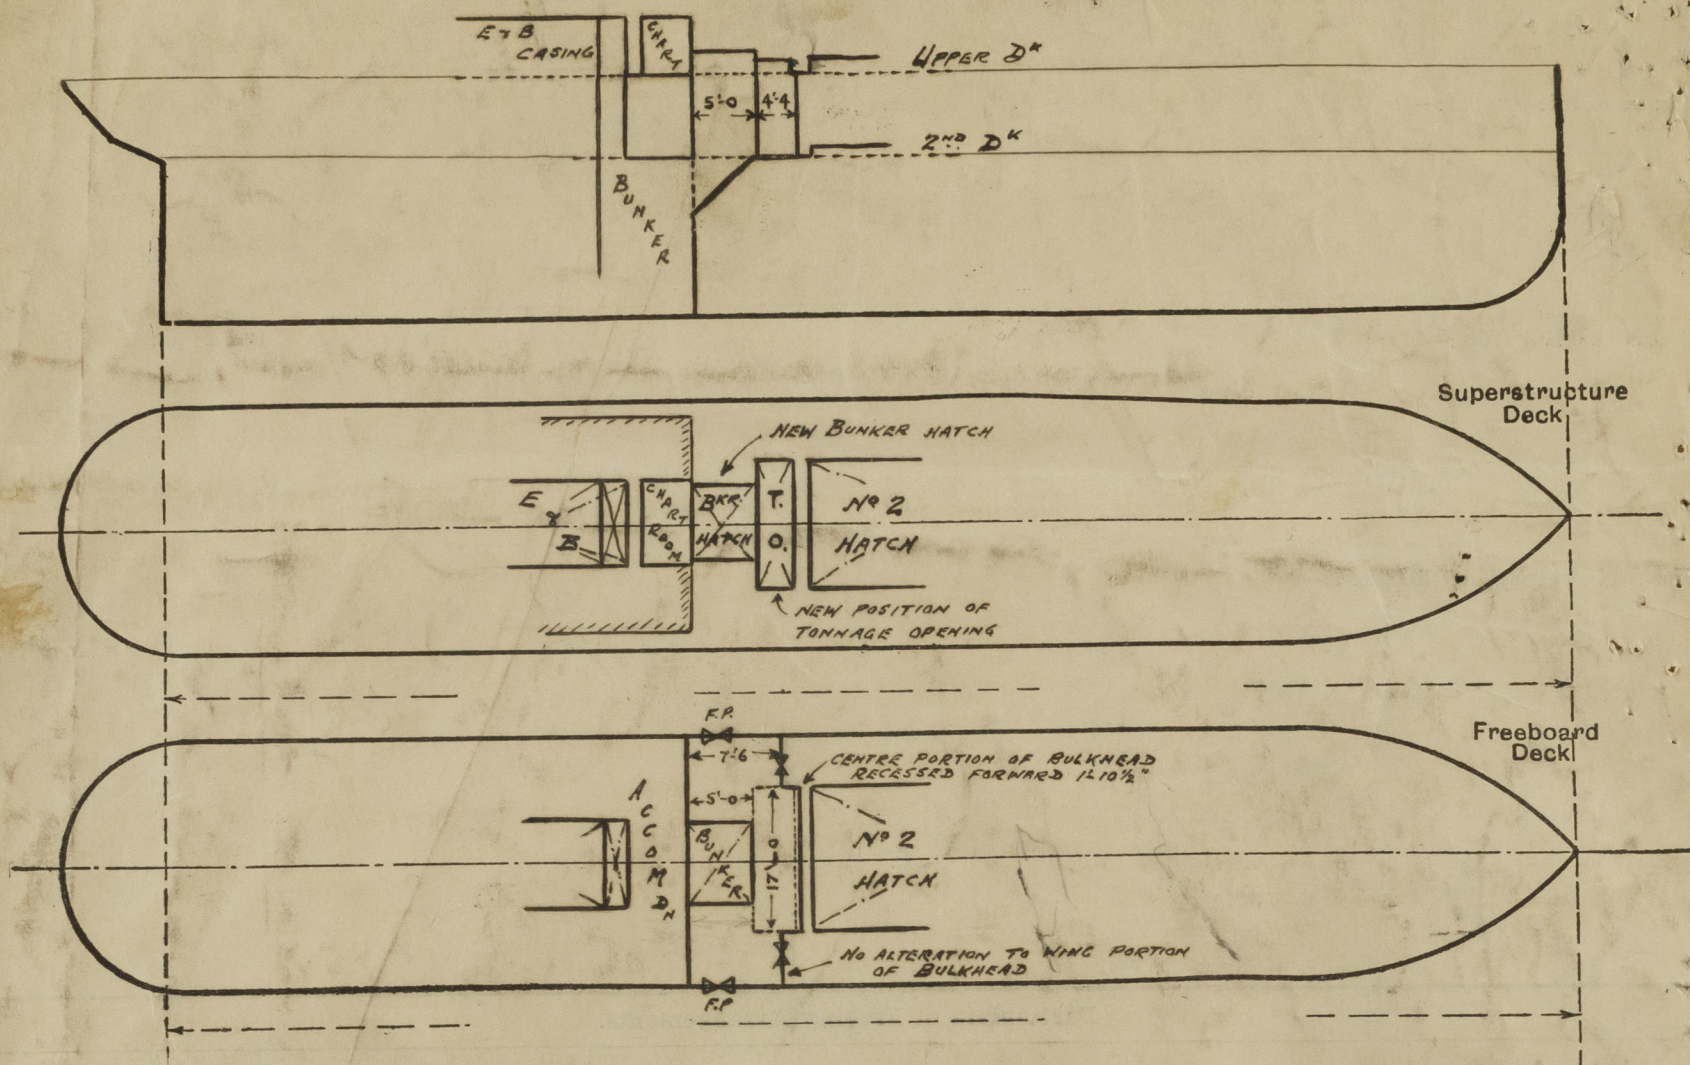 E & B
CASING
CHART
UPPER DK
5'-0
4'-4
2ND DK
BUNKER
Superstructure
Deck
NEW BUNKER HATCH
E
&
B
CHART
ROOM
BKR.
HATCH
T.
O.
No 2
HATCH
NEW POSITION OF
TONNAGE OPENING
Freeboard
Deck
F.P.
7'-6
CENTRE PORTION OF BULKHEAD
RECESSED FORWARD 1'-10½"
5'-0
ACCOMDN
BUNKER
17'-0
No 2
HATCH
NO ALTERATION TO WING PORTION
OF BULKHEAD
F.P